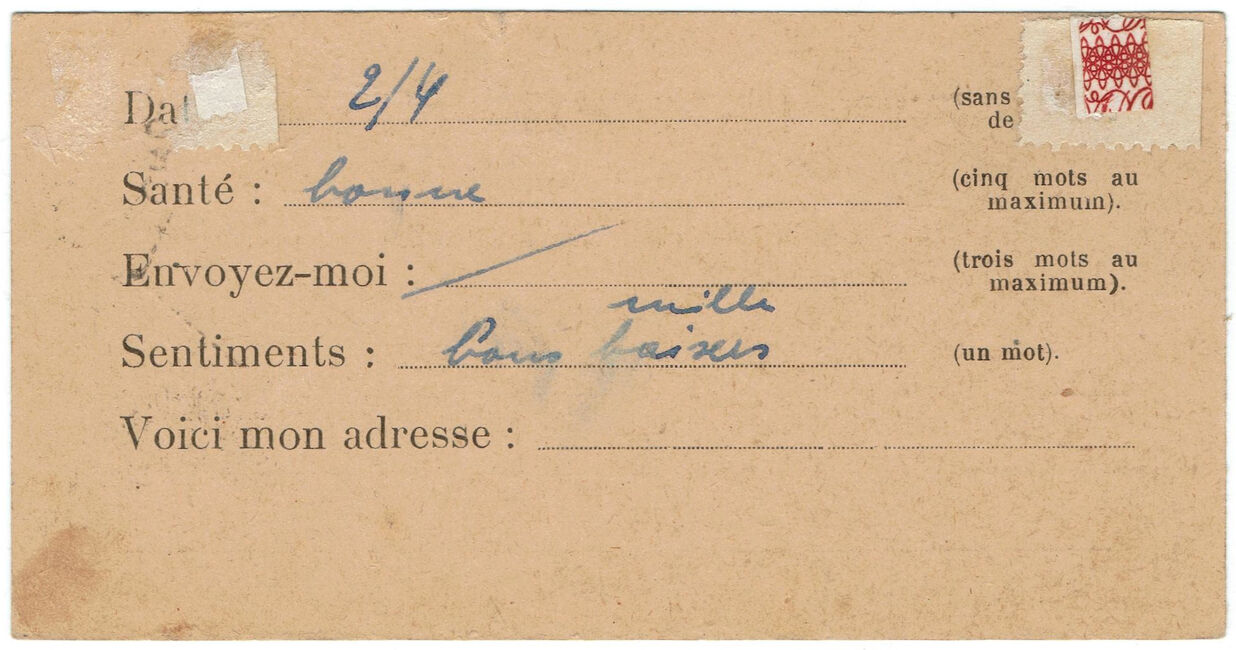 Dat 2/4 (sans
de
Santé : bonne (cinq mots au
maximum).
Envoyez-moi : (trois mots au
maximum).
mille
Sentiments : bons baisers (un mot).
Voici mon adresse :